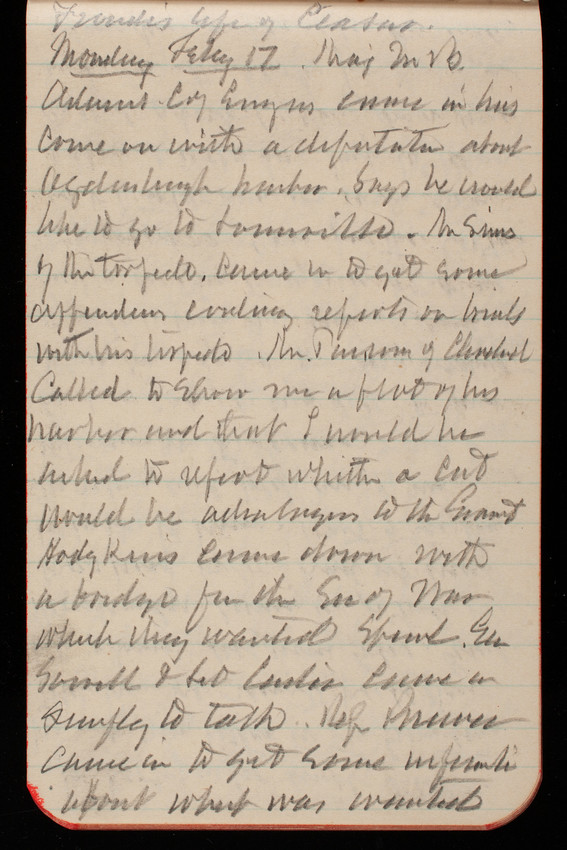 Froude's life of Ceasar.
Monday Feby 17. Maj M B
Adams C of Engrs came in has
come on with a deputatn about
Ogdensburgh harbor. Says he would
like to go to Louisville. Mr Sims
of the torpedo. Came in to get some
reports on trials
with his torpedo. Mr. Parsons of Cleveland
Called to show me a plat of his
harbor and that I would be
asked to report whether a cut
would be advantageous to the Govmt
Hodgkins came down with
a bridge for the Sec of War
which they wanted Genl
& Lt came in
simply to talk. Rep
came in to get some informati
about what was wanted